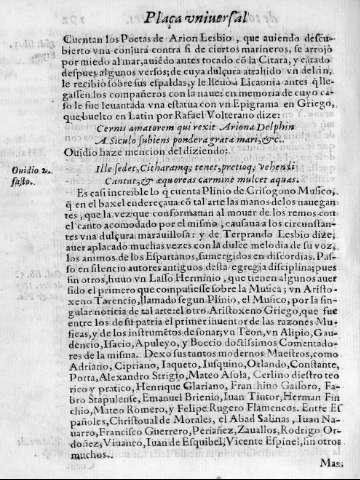 Plaça vniuersal
Cuentan los Poetas de Arion Lesbio, que auiendo descu-
bierto vna conjura contra si de ciertos marineros, se arrojò
por miedo al mar, auiédo antes tocado cō la Citara, y cātado
despues algunos versos; de cuya dulçura atrahido vn delfin,
le recibio sobre sus espaldas, y le lleuò a Licaonia antes q̃ lle-
gassen los compañeros con la naue: en memoria de cuyo ca-
so le fue leuantada vna estatua con vn Epigrama en Griego,
que buelto en Latin por Rafael Volterano dize:
Cernis amatorem qui vexit Ariona Delphin
A Siculo subiens pondera grata mari, &c.
Ouidio haze mencion del diziendo:
Ouidio 2.
fasto.
Ille sedet, Citharamq; tenet, pretioq; vehendi
Cantat, & æquoreas carmine mulcet aquas.
Es casi increible lo q̃ cuenta Plinio de Crisogono Musico,
q̃ en el baxel endereçaua cō tal arte las manos de los nauegan
tes, que la vez que conformauan al mouar de los remos con
el canto acomodado por el mismo, causaua a los circunstan-
tes vna dulçura marauillosa: y de Terpando Lesbio dize;
auer aplacado muchas vezes con la dulce melodia de su voz,
los animos de los Espartanos, sumergidos en discordias. Pas-
so en silencio autores antiguos desta egregia disciplina; pues
sin otros, huuo vn Lasso Herminio, que tienen algunos auer
sido el primero que compusiesse sobre la Musica; vn Aristo-
xeno Tarencio, llamado segun Plinio, el Musico, por la sin-
gular noticia de tal arte: el otro Aristoxeno Griego, que fue
entre los de su patria el primer inuentor de las razones Mu-
sicas, y de los instrumētos de sonar; vn Teon, vn Alipio, Gau-
dencio, Isacio, Apuleyo, y Boecio doctissimos Comentado-
res de la misma. Dexo sus tantos modernos Maestros, como
Adriano, Cipriano, Iaqueto, Iusquino, Orlando, Constante,
Porta, Alexandro Strigio, Mateo Asula, Cerlino diestro teo
rico y pratico, Henrique Glariano, Franchino Gasforo, Fa-
bro Stapulense, Emanuel Brienio, Iuan Tintor, Herman Fin
chio, Mateo Romero, y Felipe Rugero Flamencos. Entre Es
pañoles, Christoual de Morales, el Abad Salinas, Iuan Na-
uarro, Francisco Guerrero, Periañez, Zauallos, Rodrigo Or-
doñez, Viuanco, Iuan de Esquibel, Vicente Espinel, sin otros
muchos.
Mas,